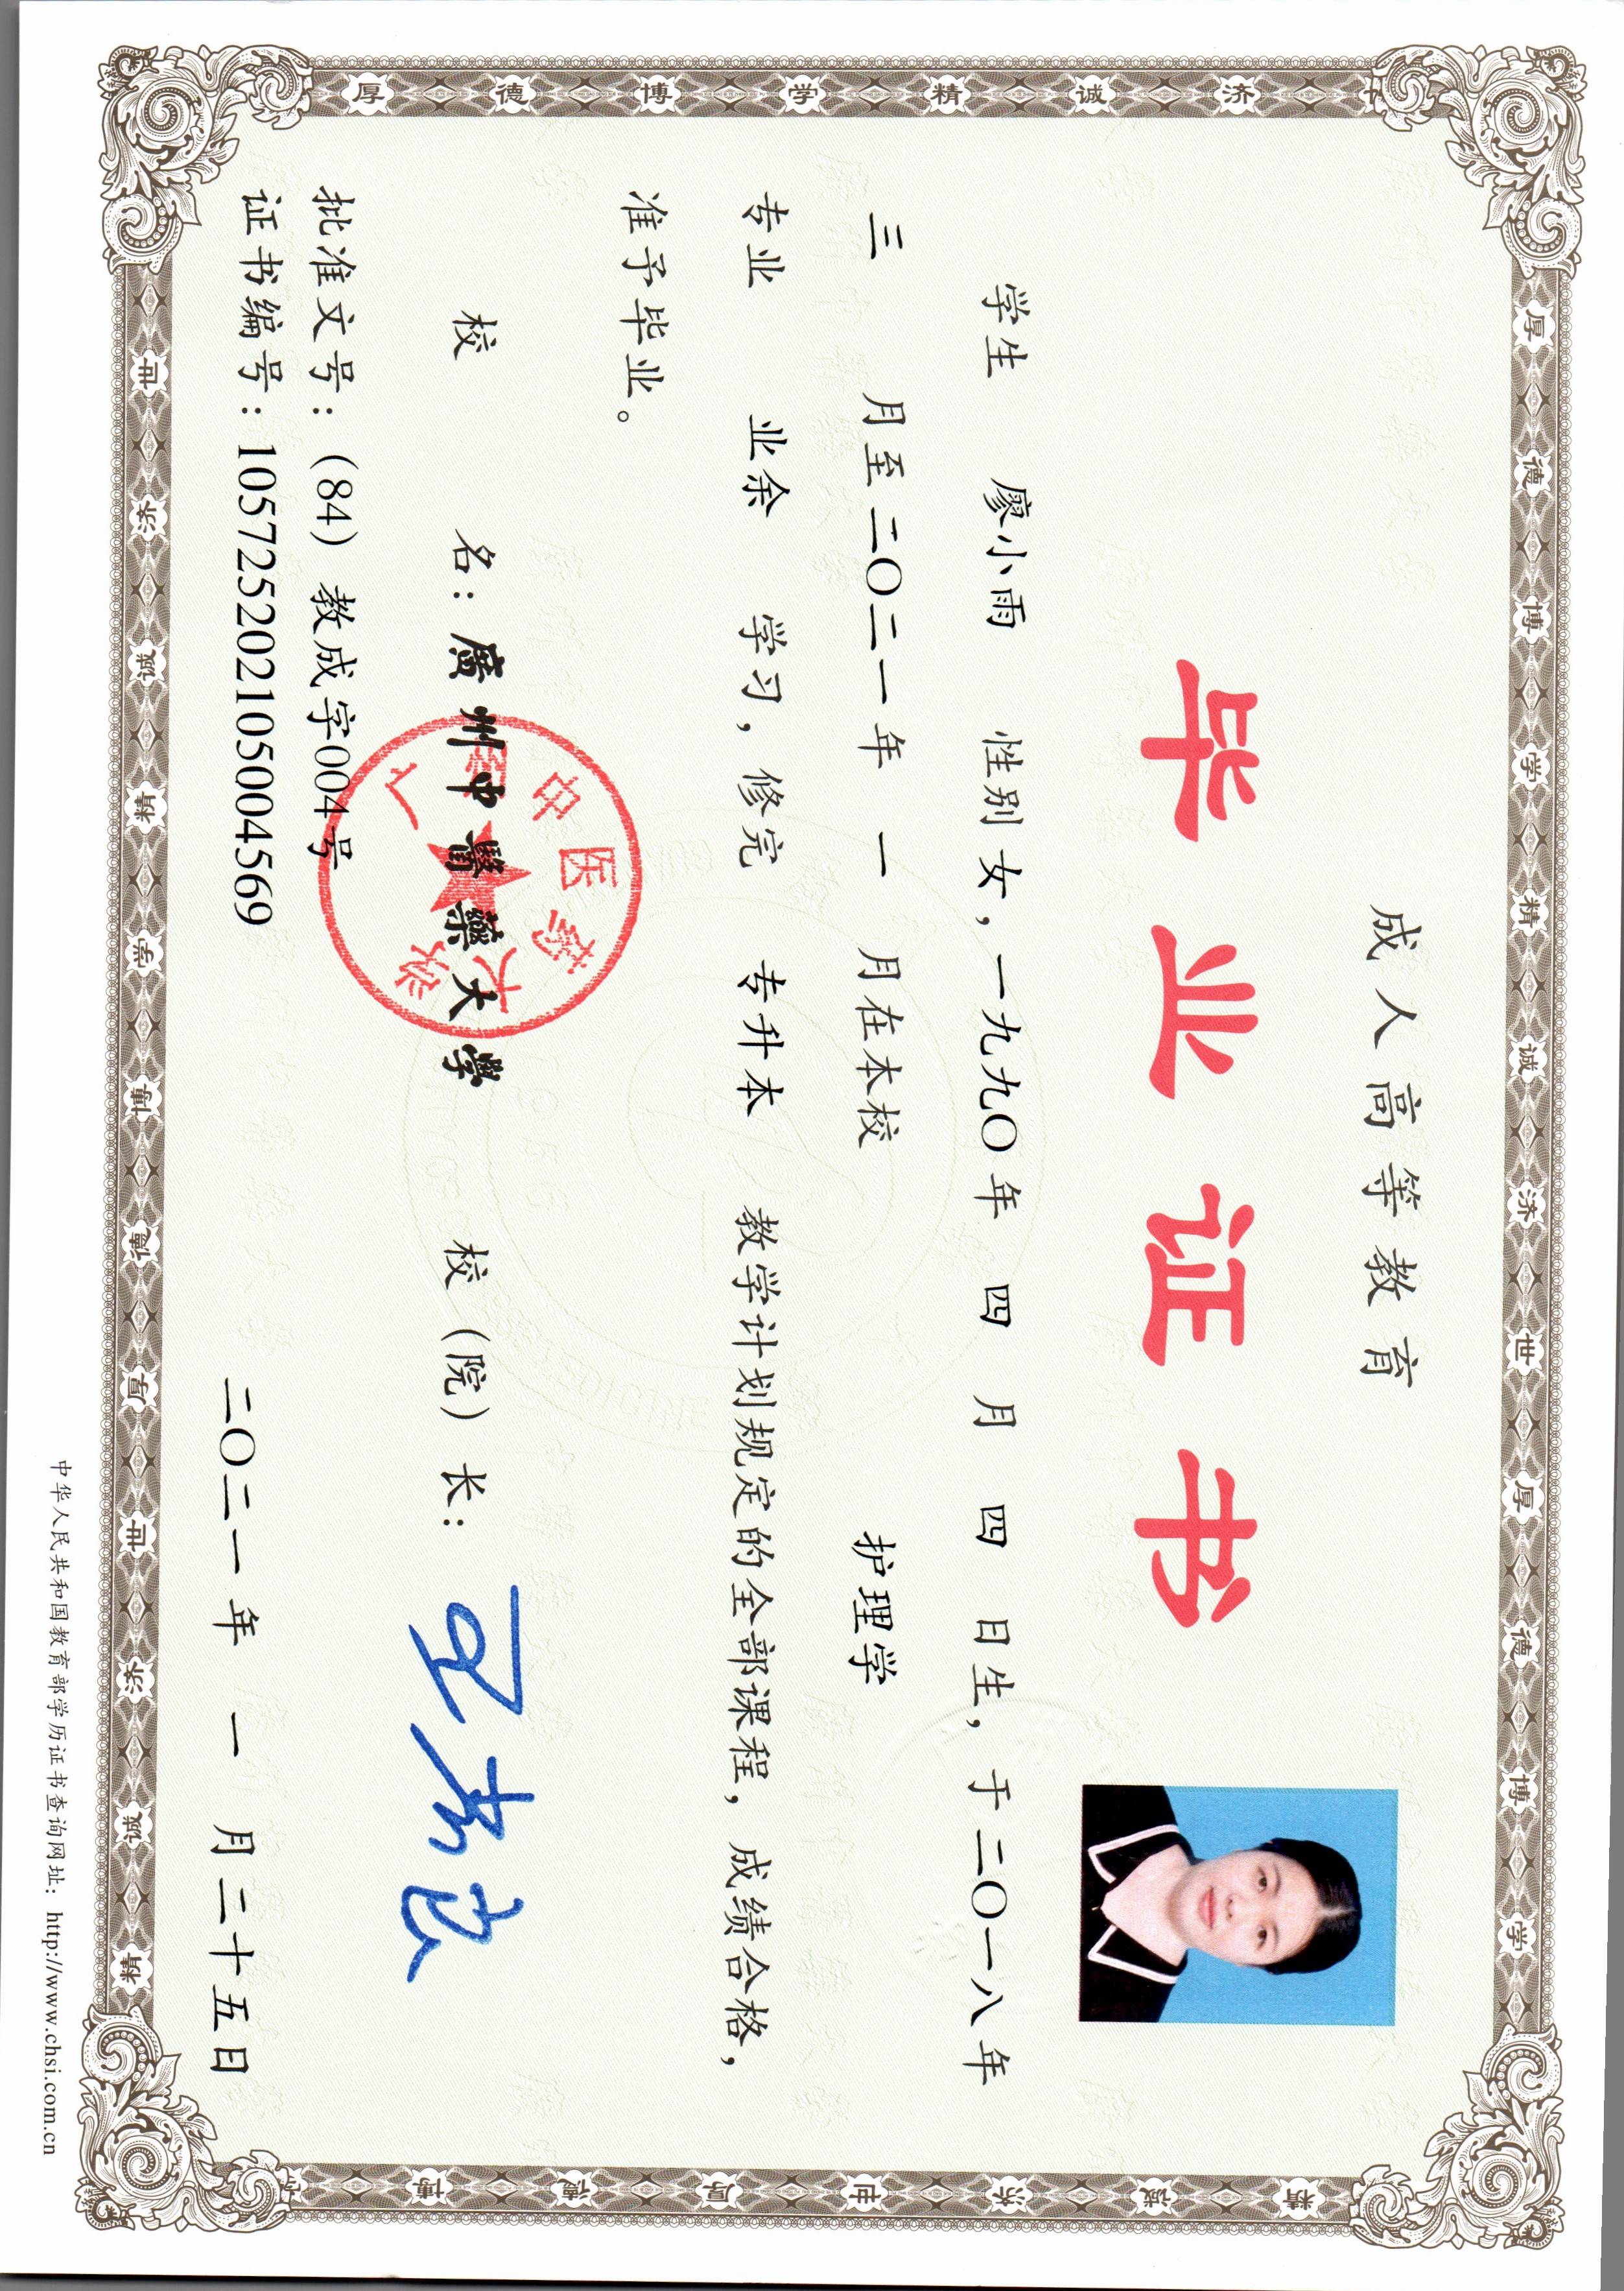 成人高等教育
毕业证书
学生 廖小雨 性别 女，一九九〇年 四 月 四 日生，于二〇一八年
三 月至二〇二一年 一 月在本校 护理学
专业 业余 学习，修完 专升本 教学计划规定的全部课程，成绩合格，
准予毕业。
校 名：廣州中醫藥大學 校（院）长：
广州中医药大学
批准文号：（84）教成字004号
证书编号：105725202105004569 二〇二一年 一 月二十五日
中华人民共和国教育部学历证书查询网址：http://www.chsi.com.cn
厚德博学精诚济世